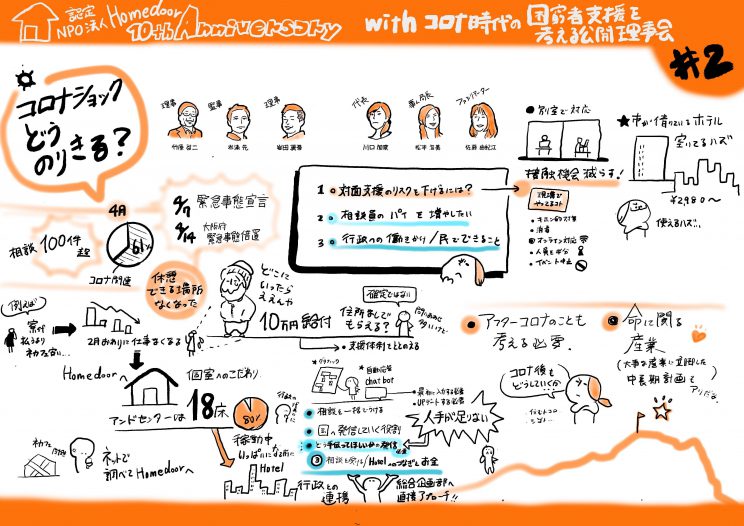 認定
NPO法人 Homedoor
10th Anniversary
with コロナ時代の
困窮者支援を
考える公開理事会
#2
コロナショック
どう
のりきる?
理事
監事
理事
代表
事務局長
アドバイザー
川口 加奈
松本 浩美
● 別室で対応
★ 市が借りているホテル
空いてるハズ
¥2980〜
使えるハズ…
接触機会 減らす!
現場で
やってるコト
• 消毒
• オンライン対応
• 人員を半分
• イベント中止
1 対面支援のリスクを下げるには?
2 相談員のパイを増やしたい
3 行政への働きかけ/民でできること
4月
相談 100件
超
61%
コロナ関連
4/7 緊急事態宣言
4/14 大阪府
緊急事態措置
休憩
できる場所
なくなった
どこに
いったら
ええんや
10万円給付
確定ではない
住所なしで
もらえる?
問い合わせ
多いけど
• 支援体制をととのえる
例えば
寮が
2月おわりに仕事なくなる
Homedoorへ
個室へのこだわり
アンドセンターは 18床
80%
稼動中
いっぱいになる前に
Hotel
ネットで
調べてHomedoorへ
行政との
連携
自動応答
chat bot
• 最初に入力する必要
• UPデートする必要
● 相談を一括でうける
● 国への発信していく役割
● どう手伝ってほしいかの発信
③ 相談を受ける/Hotelへのつなぎとお金
人手が足りない
総合企画部へ
直接アプローチ!!
● アフターコロナのことも
考える必要.
● 命に関る
産業
(大事な産業に立間した
中長期計画も
アリだな.
コロナ後を
どうしていくか